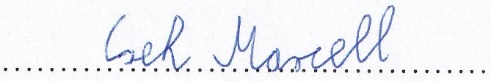 Cseh Marcell